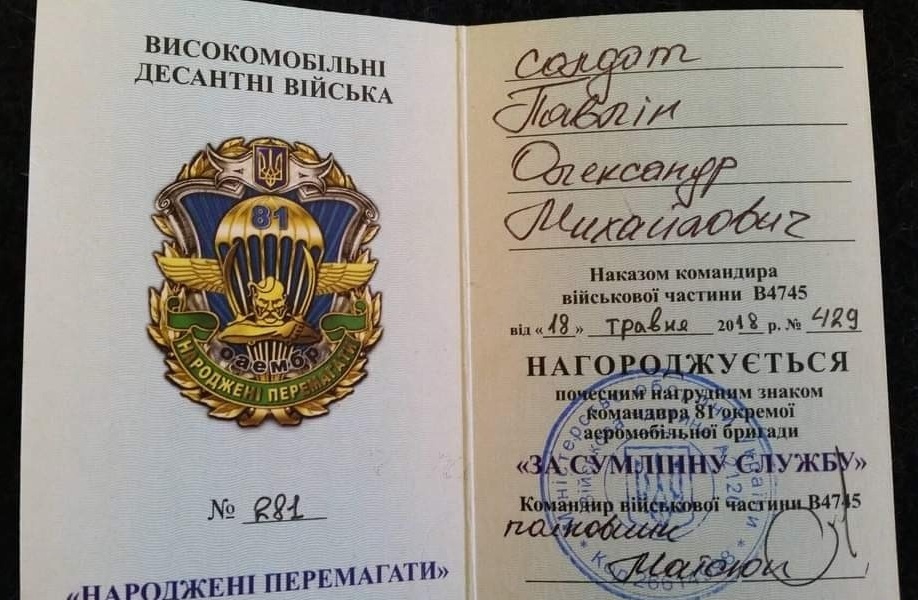 ВИСОКОМОБІЛЬНІ
ДЕСАНТНІ ВІЙСЬКА
81
оаембр
НАРОДЖЕНІ ПЕРЕМАГАТИ
№ 281
«НАРОДЖЕНІ ПЕРЕМАГАТИ»
солдат
Павлін
Олександр
Михайлович
Наказом командира
військової частини В4745
від «18» травня 2018 р. № 429
НАГОРОДЖУЄТЬСЯ
почесним нагрудним знаком
командира 81 окремої
аеромобільної бригади
«ЗА СУМЛІННУ СЛУЖБУ»
Командир військової частини В4745
полковник